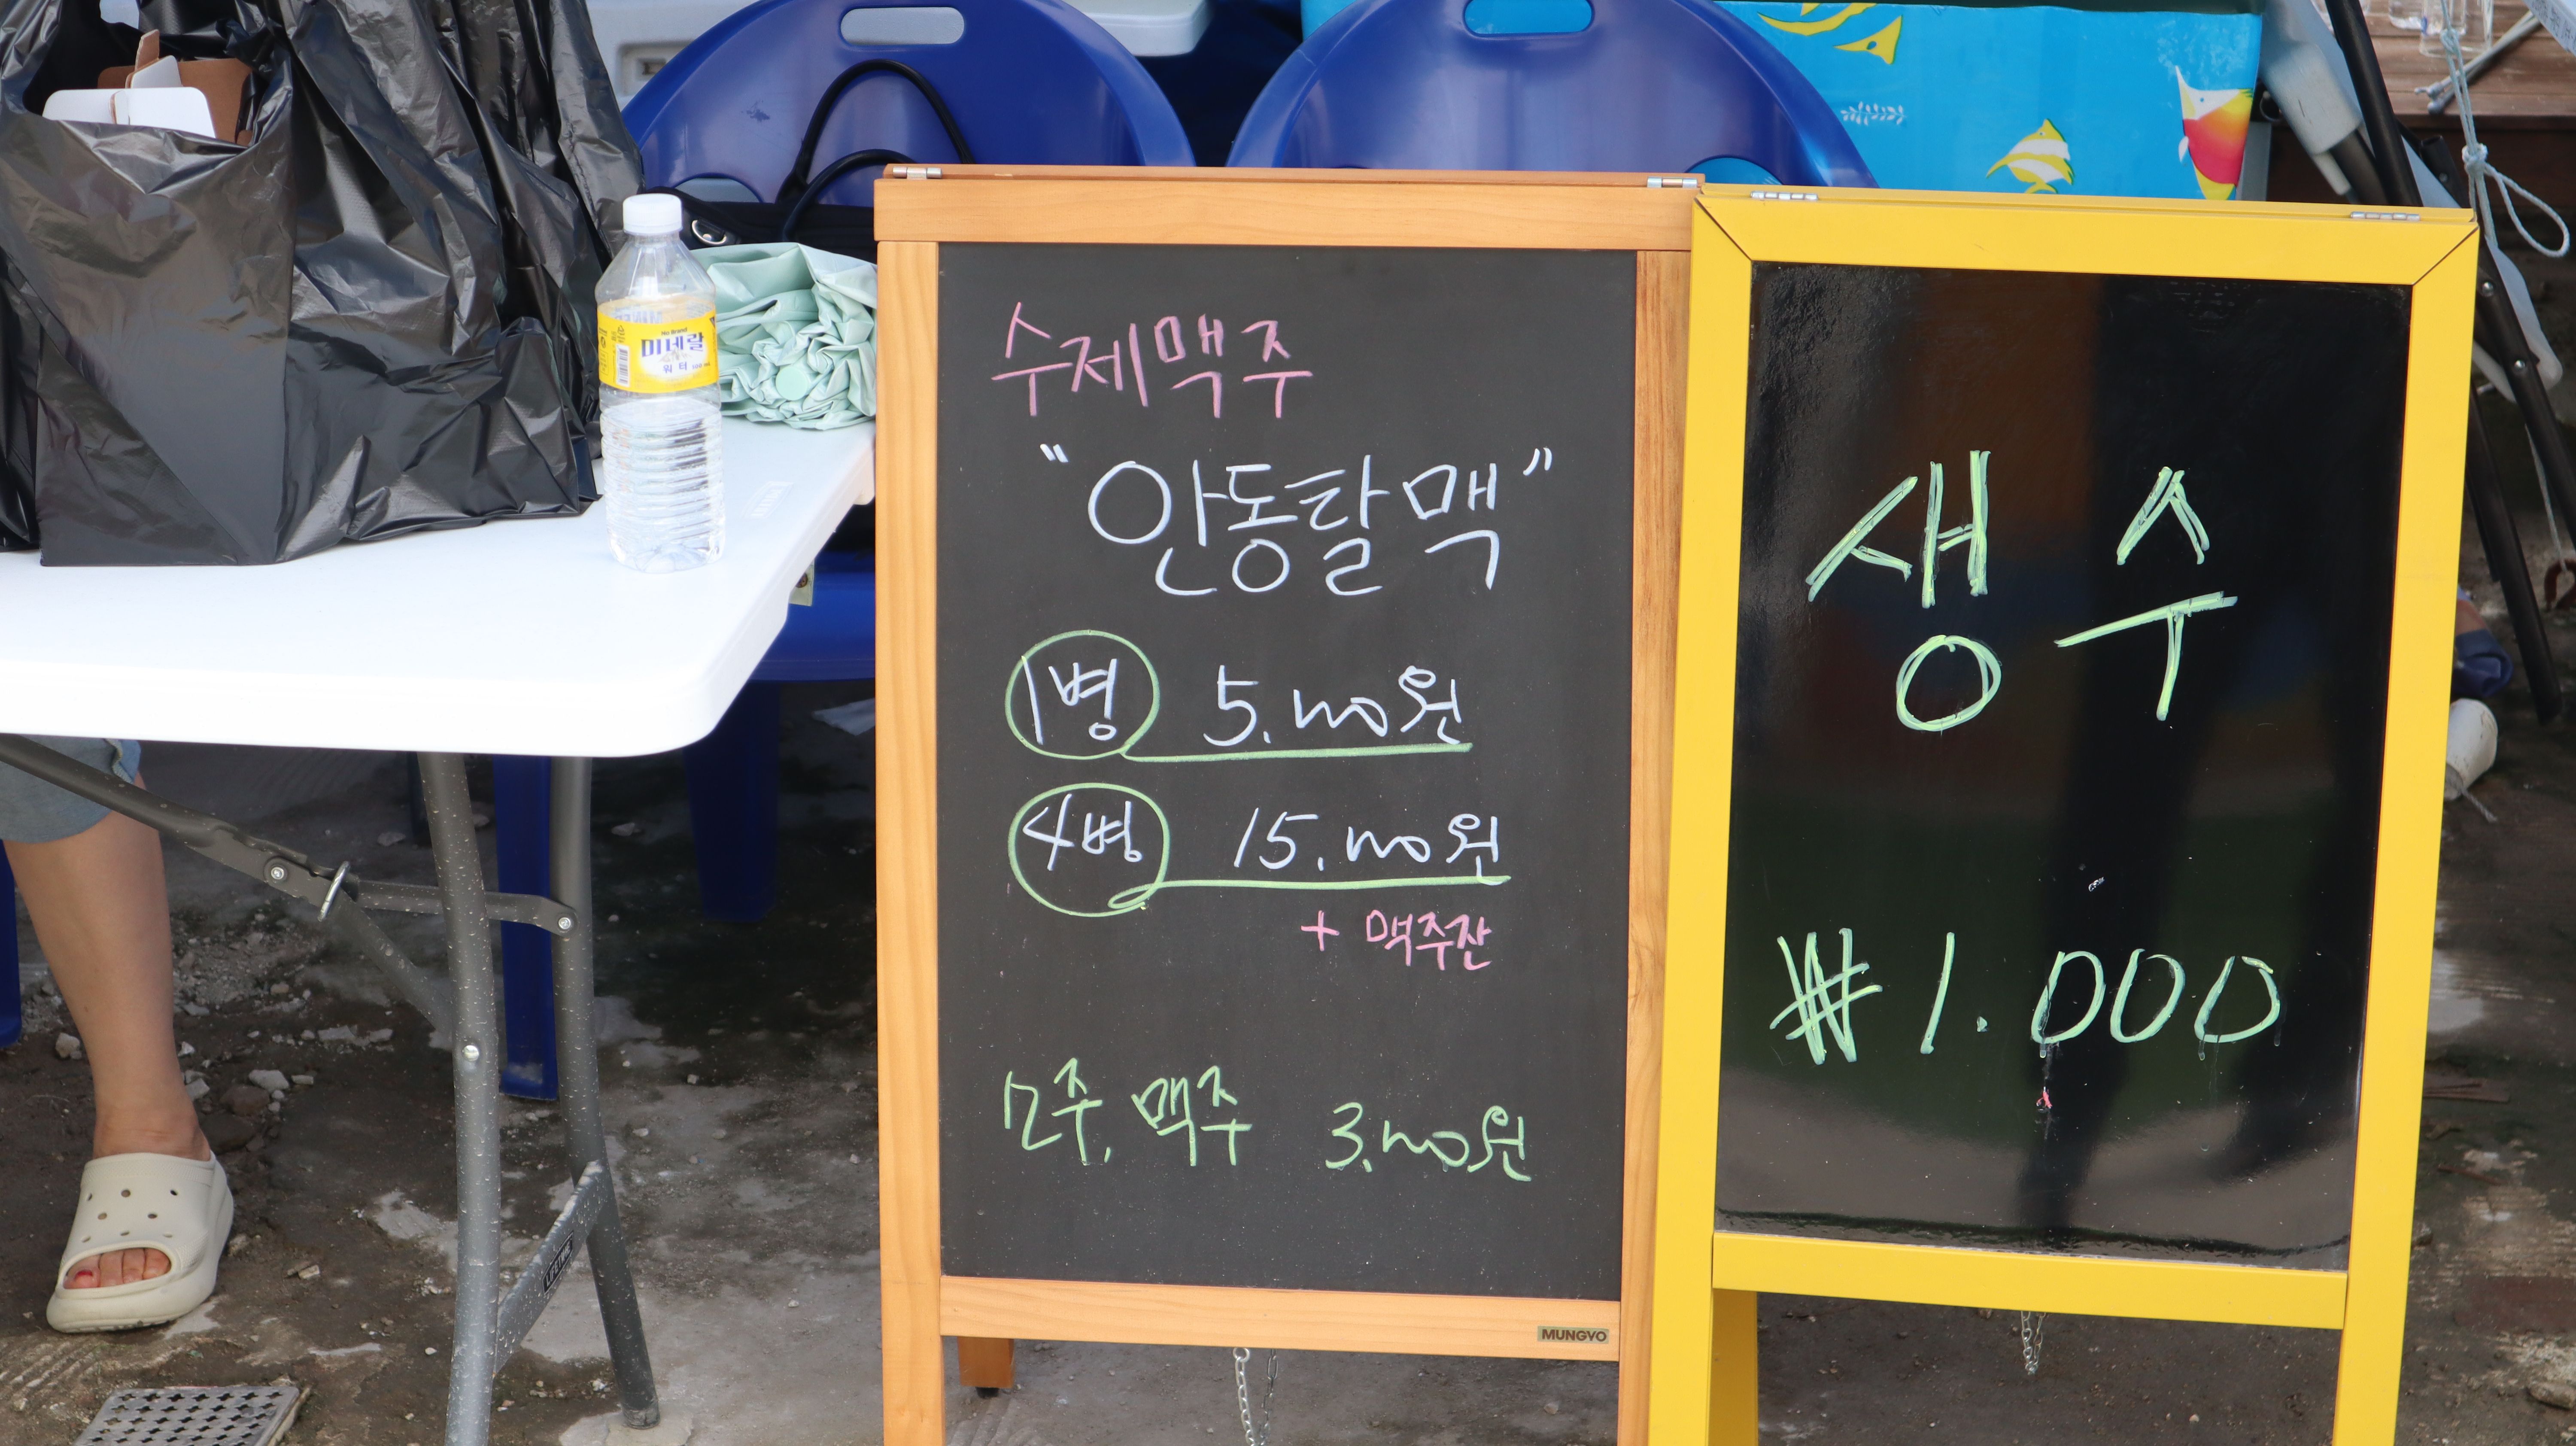 수제맥주
"안동탈맥"
1병 5.000원
4병 15.000원
+ 맥주잔
소주, 맥주 3.000원
MUNGYO
생수
₩1.000
No Brand
미네랄
워터
LIFETIME